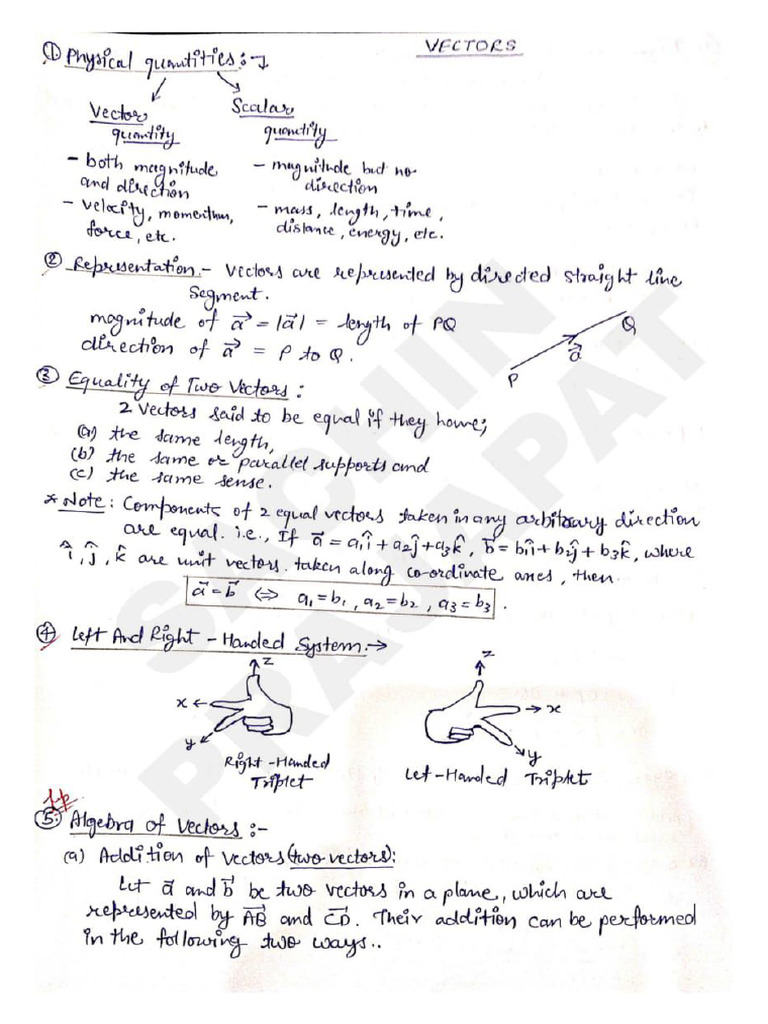 VECTORS
① Physical quantities:→
Vector
quantity
- both magnitude
and direction
- velocity, momentum,
force, etc.
Scalar
quantity
- magnitude but no
direction
- mass, length, time,
distance, energy, etc.
② Representation:- Vectors are represented by directed straight line
Segment.
magnitude of a⃗ = |a⃗| = length of PQ
direction of a⃗ = P to Q.
P
a⃗
Q
③ Equality of Two Vectors:
2 Vectors said to be equal if they have;
(a) the same length,
(b) the same or parallel supports and
(c) the same sense.
* Note: Components of 2 equal vectors taken in any arbitrary direction
are equal. i.e., If a⃗ = a₁î + a₂ĵ + a₃k̂, b⃗ = b₁î + b₂ĵ + b₃k̂, where
î, ĵ, k̂ are unit vectors. taken along co-ordinate axes, then.
a⃗ = b⃗ ⇔ a₁=b₁, a₂=b₂, a₃=b₃.
④ Left And Right-Handed System:→
z
x
y
Right-Handed
Triplet
z
x
y
Let-Handed Triplet
⑤ Algebra of Vectors:-
(a) Addition of Vectors (two vectors):
Let a⃗ and b⃗ be two vectors in a plane, which are
represented by AB⃗ and CD⃗. Their addition can be performed
in the following two ways..
SACHIN
PRAJAPAT